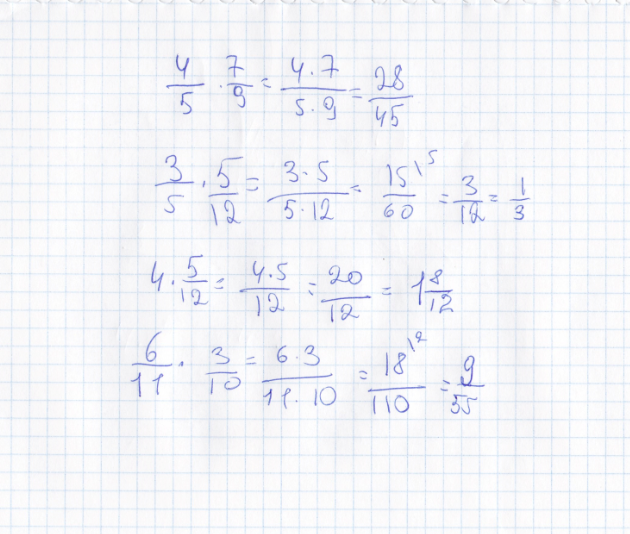 4/5 · 7/9 = 4·7/5·9 = 28/45
3/5 · 5/12 = 3·5/5·12 = 15\5/60 = 3/12 = 1/3
4 · 5/12 = 4·5/12 = 20/12 = 1 8/12
6/11 · 3/10 = 6·3/11·10 = 18\2/110 = 9/55